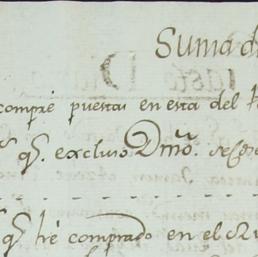 Suma d
compré puestas en esta del
qs. excluso Dmõ.
qs. hé comprado en el